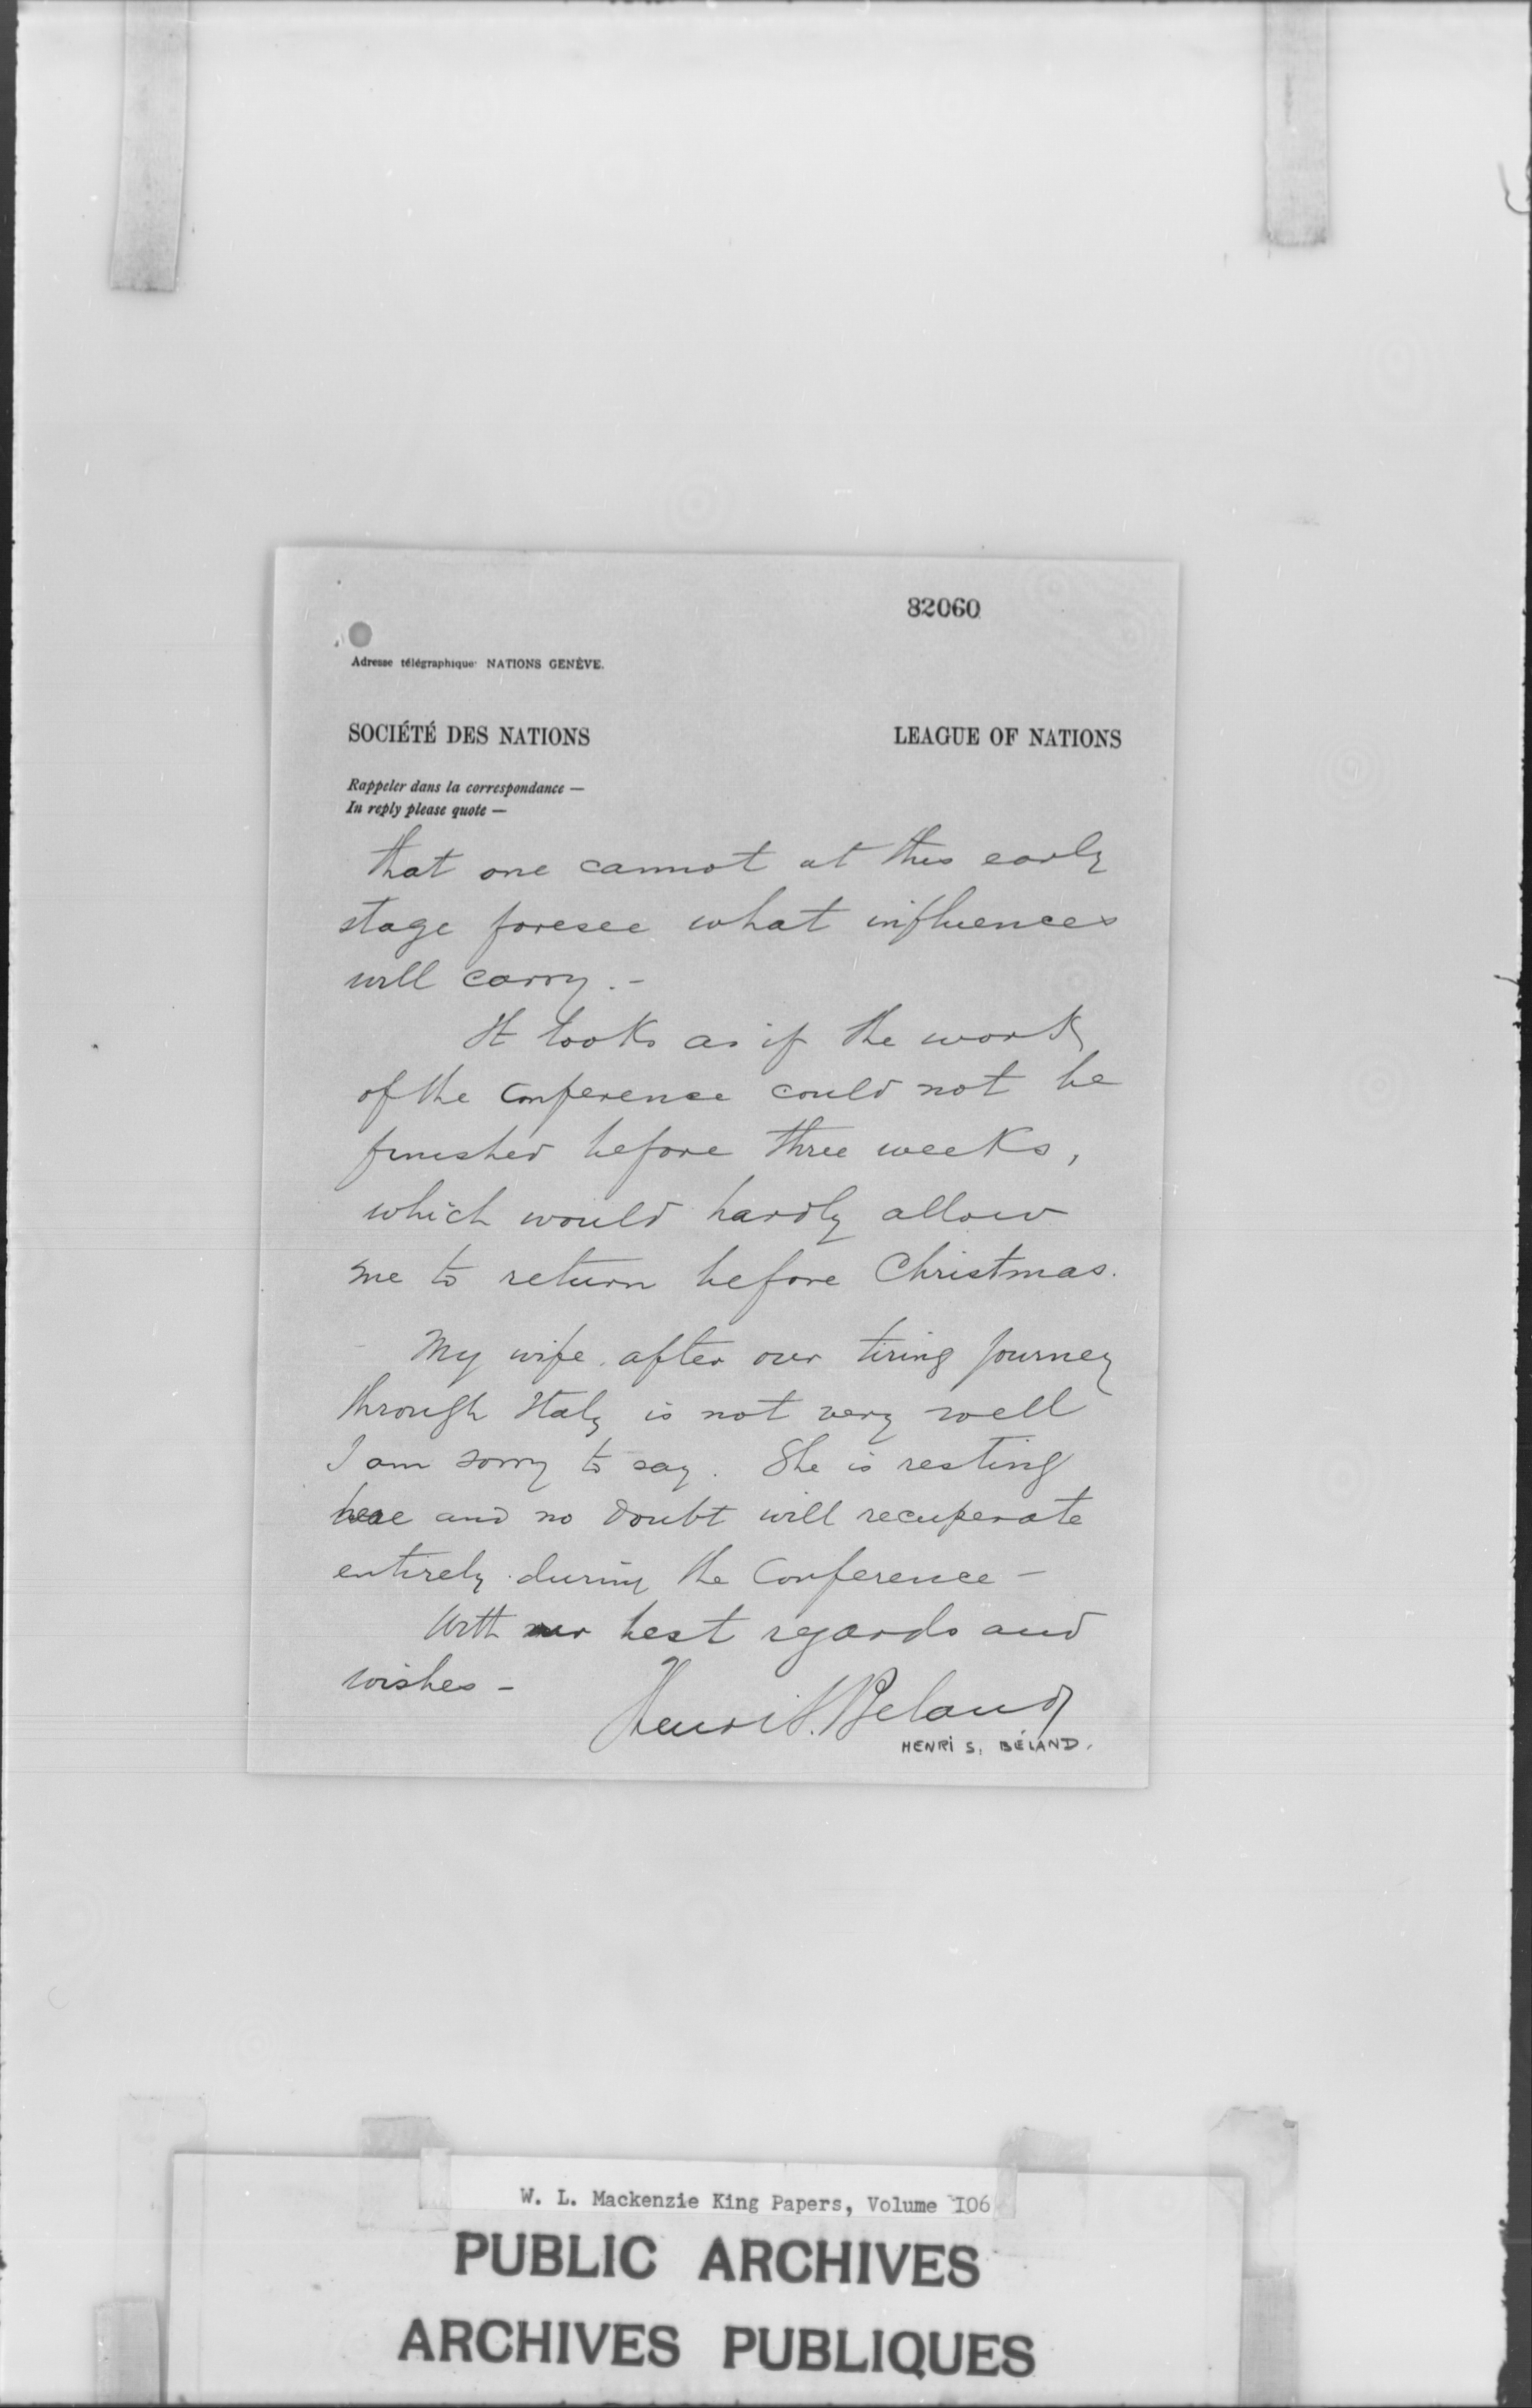 82060
Adresse télégraphique: NATIONS GENÈVE.
SOCIÉTÉ DES NATIONS
LEAGUE OF NATIONS
Rappeler dans la correspondance —
In reply please quote —
that one cannot at this early
stage foresee what influences
will carry. -
It looks as if the work
of the Conference could not be
finished before three weeks,
which would hardly allow
me to return before Christmas.
My wife, after our tiring journey
through Italy is not very well
I am sorry to say. She is resting
here and no doubt will recuperate
entirely during the Conference -
With our best regards and
wishes -
Henri S. Beland
HENRI S. BÉLAND.
W. L. Mackenzie King Papers, Volume 106
PUBLIC ARCHIVES
ARCHIVES PUBLIQUES